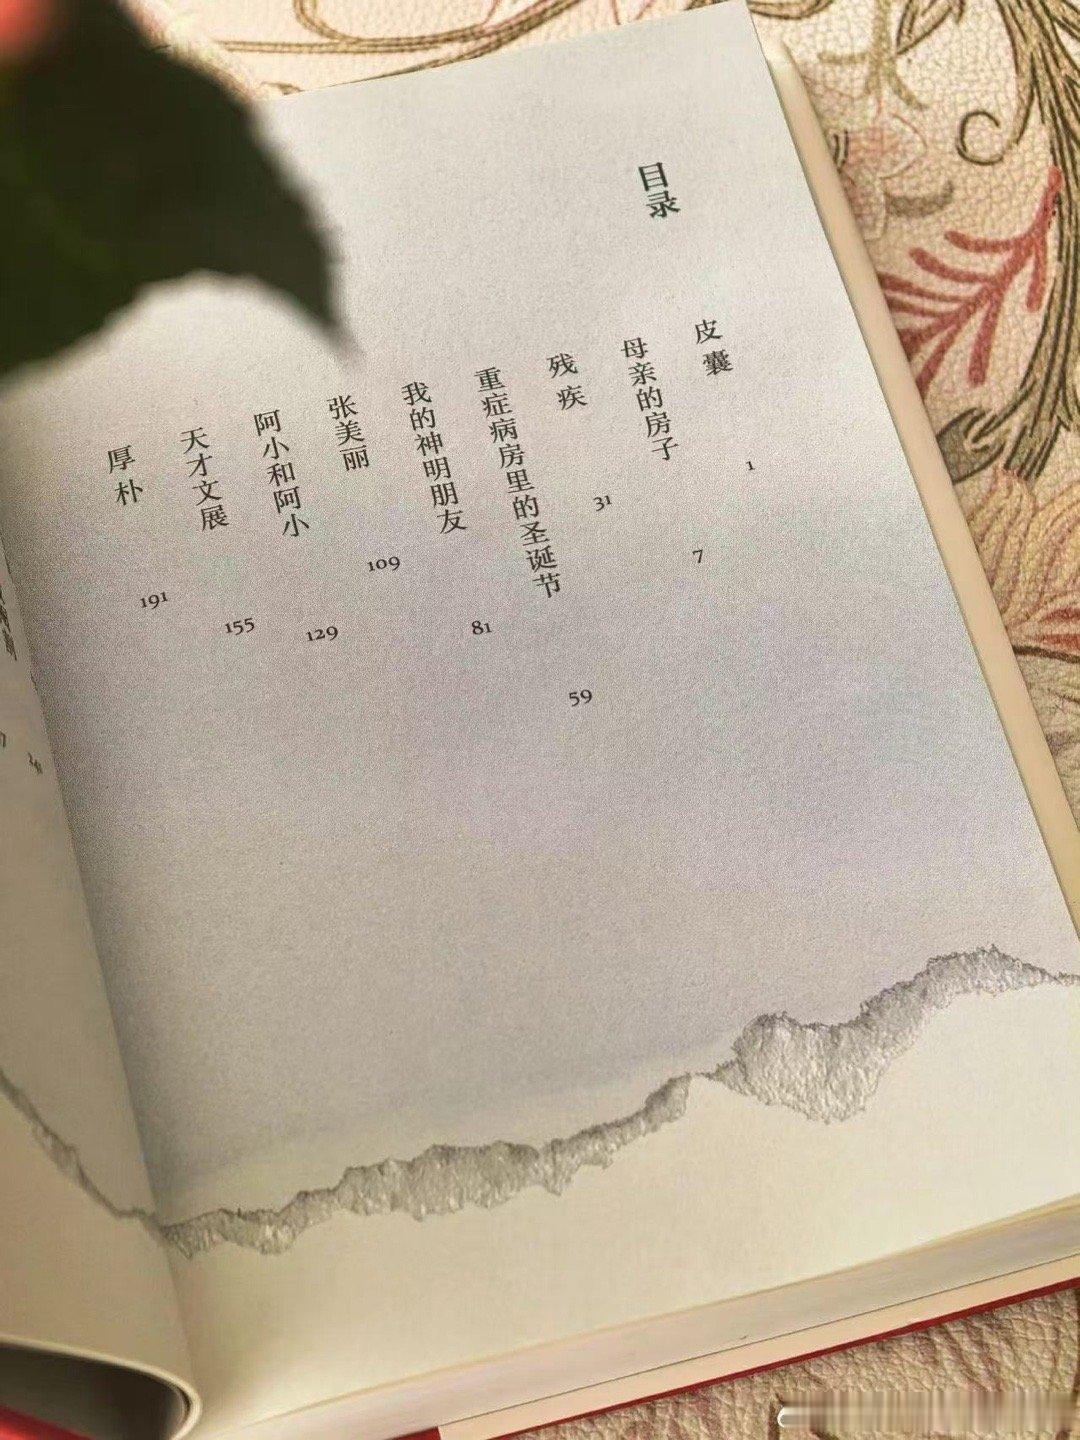 目录
皮囊
1
母亲的房子
7
残疾
31
重症病房里的圣诞节
59
我的神明朋友
81
张美丽
109
阿小和阿小
129
天才文展
155
厚朴
191